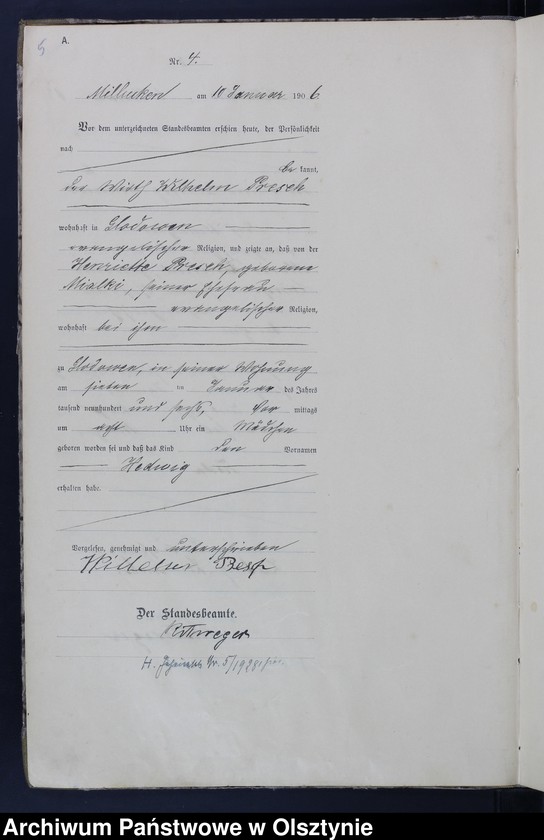 5
A.
Nr. 4.
Millucken am 10 Januar 1906
Vor dem unterzeichneten Standesbeamten erschien heute, der Persönlichkeit
nach
be kannt,
der Wirth Wilhelm Presch
wohnhaft in Glodowen
evangelischer Religion, und zeigte an, daß von der
Henriette Presch, geborene
Mialki, seiner Ehefrau
evangelischer Religion,
wohnhaft bei ihm
zu Glodowen, in seiner Wohnung
am sieben ten Januar des Jahres
tausend neunhundert und sechs, Vor mittags
um acht Uhr ein Mädchen
geboren worden sei und daß das Kind den Vornamen
Hedwig
erhalten habe.
Vorgelesen, genehmigt und unterschrieben
Wilhelm Presch
Der Standesbeamte.
H. Nr. 5/1928
Archiwum Państwowe w Olsztynie